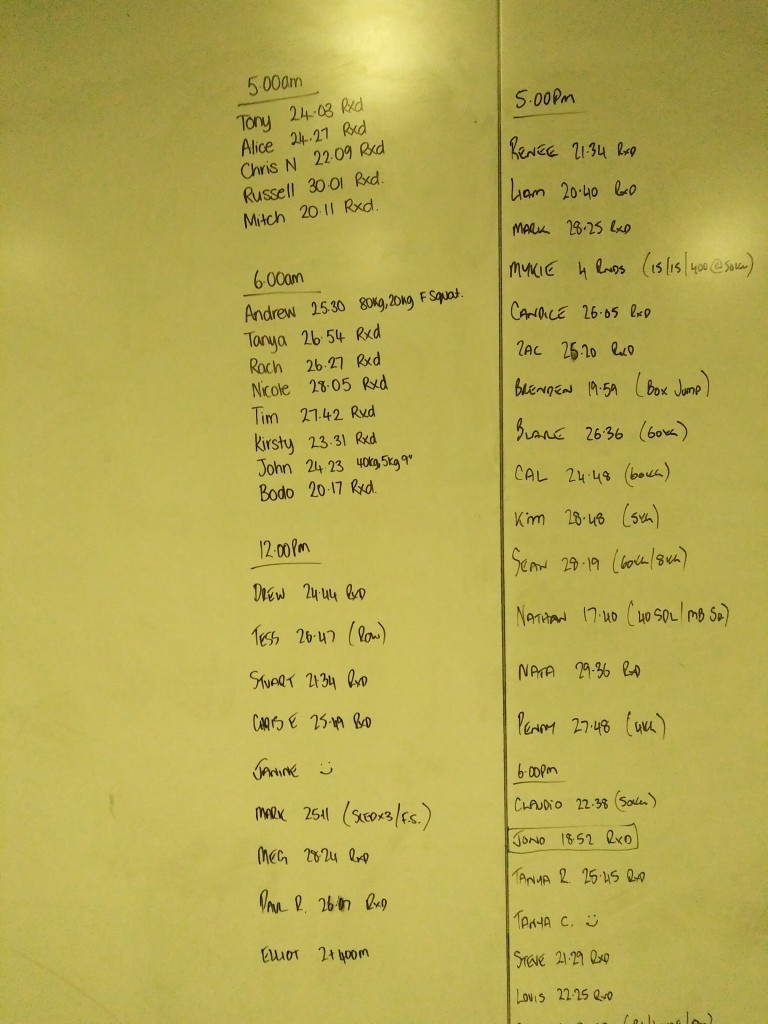 5.00am
Tony 24.03 Rxd
Alice 24.27 Rxd
Chris N 22.09 Rxd
Russell 30.01 Rxd.
Mitch 20.11 Rxd.
6.00am
Andrew 25.30 80kg, 20kg F Squat.
Tanya 26.54 Rxd
Rach 26.27 Rxd
Nicole 28.05 Rxd
Tim 27.42 Rxd
Kirsty 23.31 Rxd
John 24.23 40kg, 5kg 9"
Bodo 20.17 Rxd.
12.00pm
DREW 24.44 RXD
TESS 26.47 (ROW)
STUART 21.34 RXD
CHRIS E 25.19 RXD
JANINE :)
MARK 25.11 (SLED×3/F.S.)
MEG 28.24 RXD
PAUL R. RXD
ELLIOT 2+400m
5.00pm
RENEE 21.34 RXD
LIAM 20.40 RXD
MARK 28.25 RXD
MYKIE 4 RNDS (15/15/400@50KG)
CANDICE 26.05 RXD
ZAC 25.20 RXD
BRENDEN 19.59 (BOX JUMP)
BLAKE 26.36 (60KG)
CAL 24.48 (60KG)
KIM 28.48 (5KG)
SEAN 28.19 (60KG/8KG)
NATHAN 17.40 (40SDL/MB SQ)
NATA 29.36 RXD
PENNY 27.48 (4KG)
6.00pm
CLAUDIO 22.38 (50KG)
JONO 18.52 RXD
TANYA R. 25.45 RXD
TANYA C. :)
STEVE 21.29 RXD
LOUIS 22.25 RXD